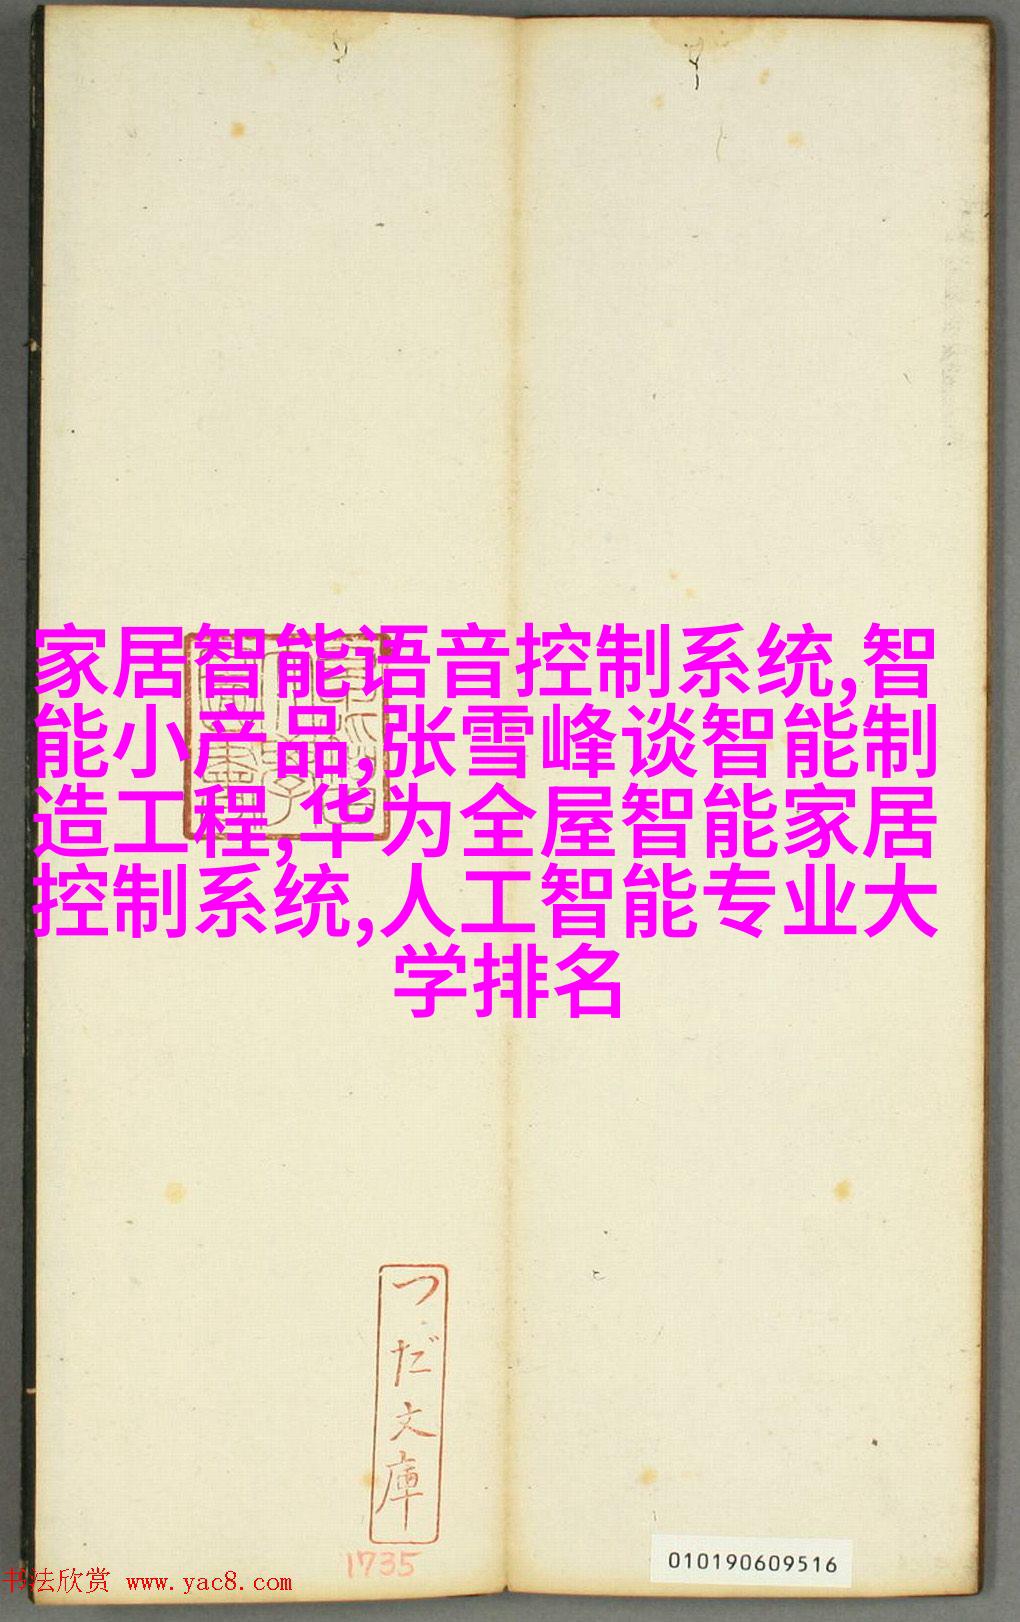 家居智能语音控制系统,智
能小产品,张雪峰谈智能制
造工程,华为全屋智能家居
控制系统,人工智能专业大
学排名
つだ文庫
1735
010190609516
书法欣赏 www.yac8.com